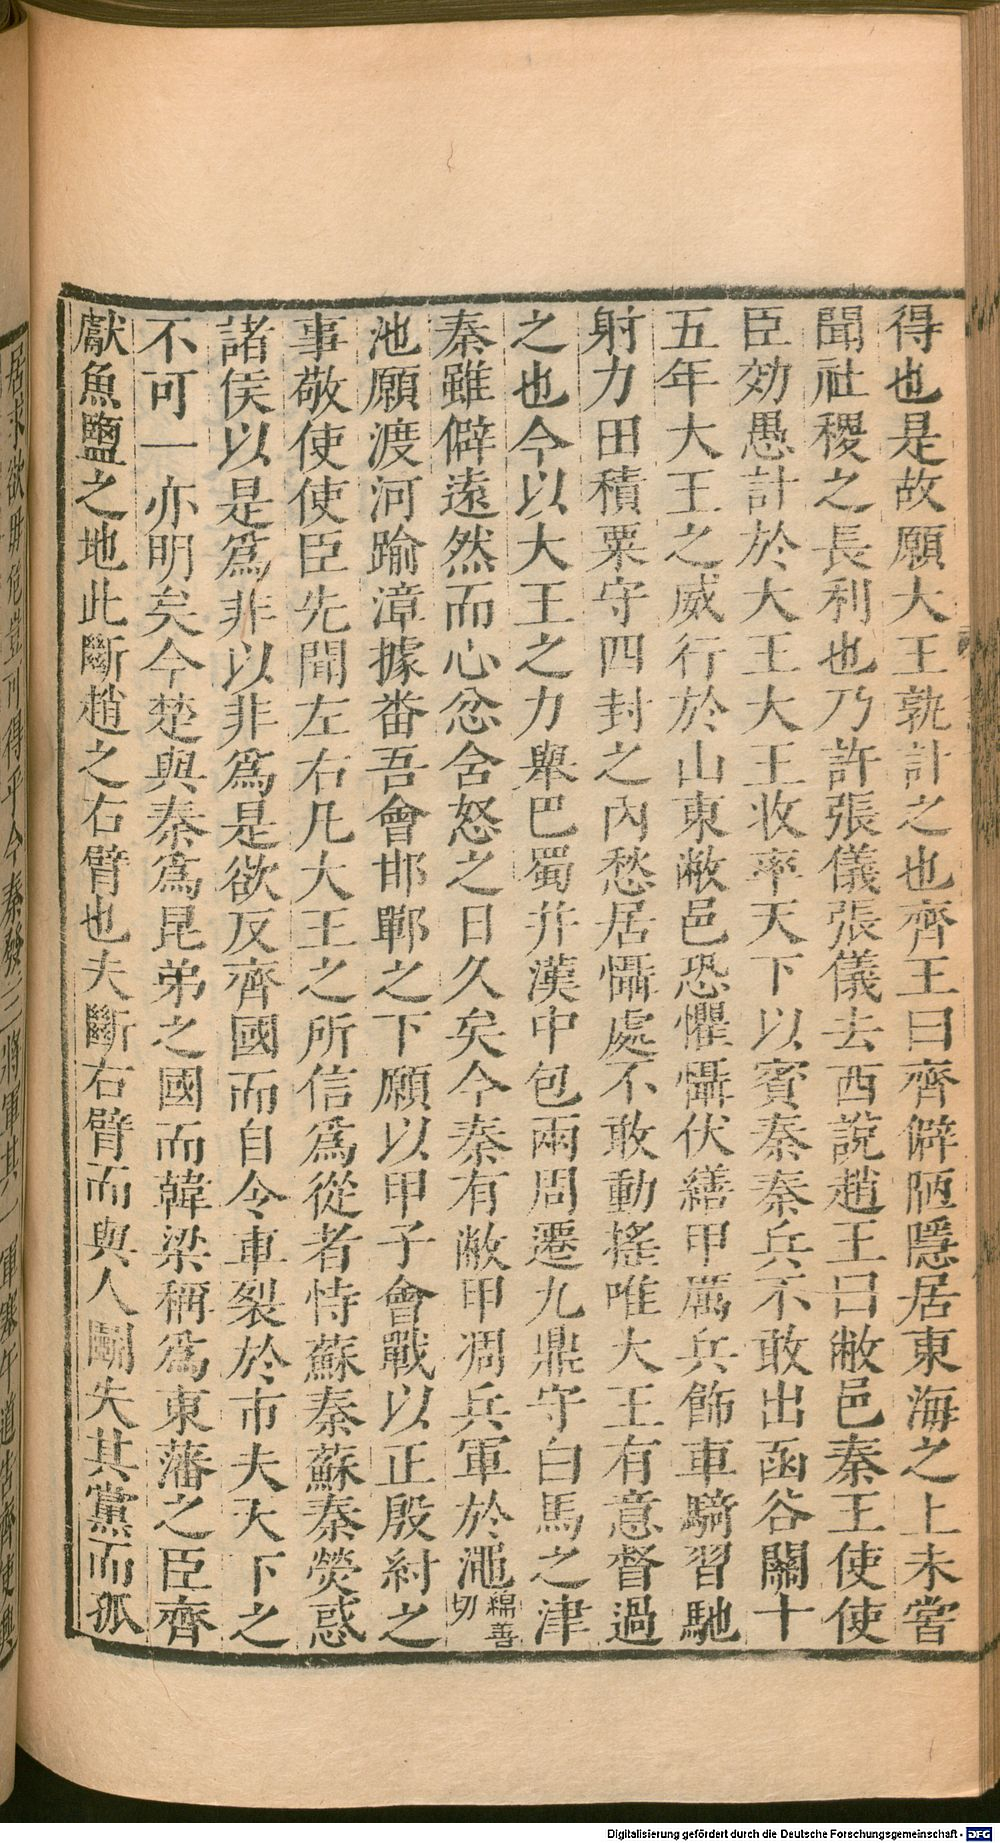 得也是故願大王孰計之也齊王曰齊僻陋隱居東海之上未嘗
聞社稷之長利也乃許張儀張儀去西說趙王曰敝邑秦王使使
臣効愚計於大王大王收率天下以賓秦秦兵不敢出函谷關十
五年大王之威行於山東敝邑恐懼懾伏繕甲厲兵飾車騎習馳
射力田積粟守四封之內愁居懾處不敢動搖唯大王有意督過
之也今以大王之力舉巴蜀并漢中包兩周遷九鼎守白馬之津
秦雖僻遠然而心忿含怒之日久矣今秦有敝甲凋兵軍於澠綿善切
池願渡河踰漳據番吾會邯鄲之下願以甲子會戰以正殷紂之
事敬使使臣先聞左右凡大王之所信爲從者恃蘇秦蘇秦熒惑
諸侯以是爲非以非爲是欲反齊國而自令車裂於市夫天下之
不可一亦明矣今楚與秦爲昆弟之國而韓梁稱爲東藩之臣齊
獻魚鹽之地此斷趙之右臂也夫斷右臂而與人鬭失其黨而孤
居求欲毋危豈可得乎今秦發三將軍其一軍塞午道告齊使興
Digitalisierung gefördert durch die Deutsche Forschungsgemeinschaft - DFG